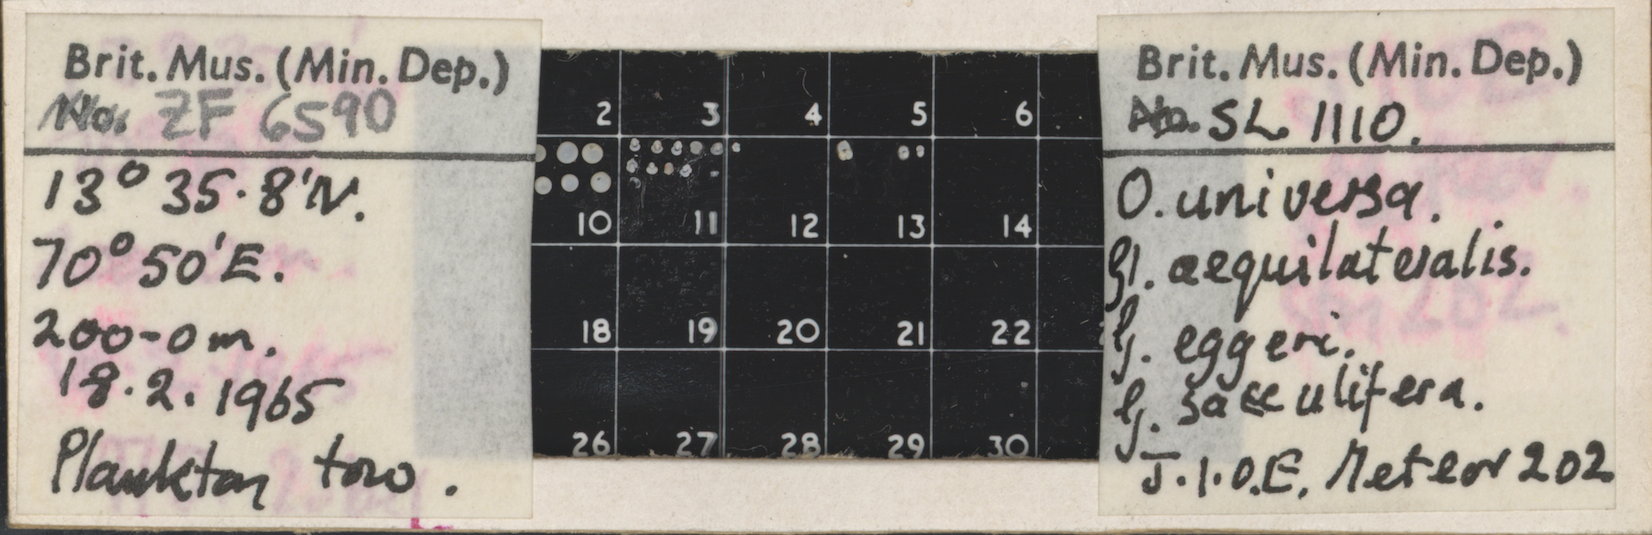 Brit. Mus. (Min. Dep.)
No. ZF 6590
13° 35.8'N.
70° 50'E.
200-0 m.
18.2.1965
Plankton tow.
2 3 4 5 6
10 11 12 13 14
18 19 20 21 22
26 27 28 29 30
Brit. Mus. (Min. Dep.)
No. SL 1110.
O. universa.
Gl. aequilateralis.
G. eggeri.
G. sacculifera.
I.I.O.E. Meteor 202